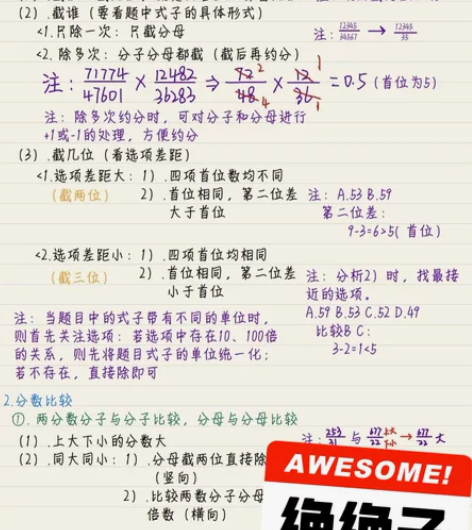 (2).截谁（要看题中式子的具体形式）
<1.只除一次：只截分母 注：12345/34567 → 12345/35
<2.除多次：分子分母都截（截后再约分）
注：71774/47601 × 12482/36283 ⇒ 72/48 × 12/36 = 0.5（首位为5）
注：除多次约分时，可对分子和分母进行
+1或-1的处理，方便约分
(3).截几位（看选项差距）
<1.选项差距大：1）.四项首位数均不同
（截两位） 2）.首位相同，第二位差 注：A.53 B.59
大于首位 第二位差：
9-3=6>5(首位)
<2.选项差距小：1）.四项首位均相同
（截三位） 2）.首位相同，第二位差 注：分析2）时，找最接
小于首位 近的选项。
A.59 B.53 C.52 D.49
注：当题目中的式子带有不同的单位时， 比较B C：
则首先关注选项：若选项中存在10、100倍 3-2=1<5
的关系，则先将题目式子的单位统一化；
若不存在，直接除即可
2.分数比较
①.两分数分子与分子比较，分母与分母比较
(1).上大下小的分数大 注：253/31 与 677/22 上大下小 → 677/22 大
(2).同大同小：1）.分母截两位直接除
（竖向）
2）.比较两数分子分母
倍数（横向）
AWESOME!
绝绝子